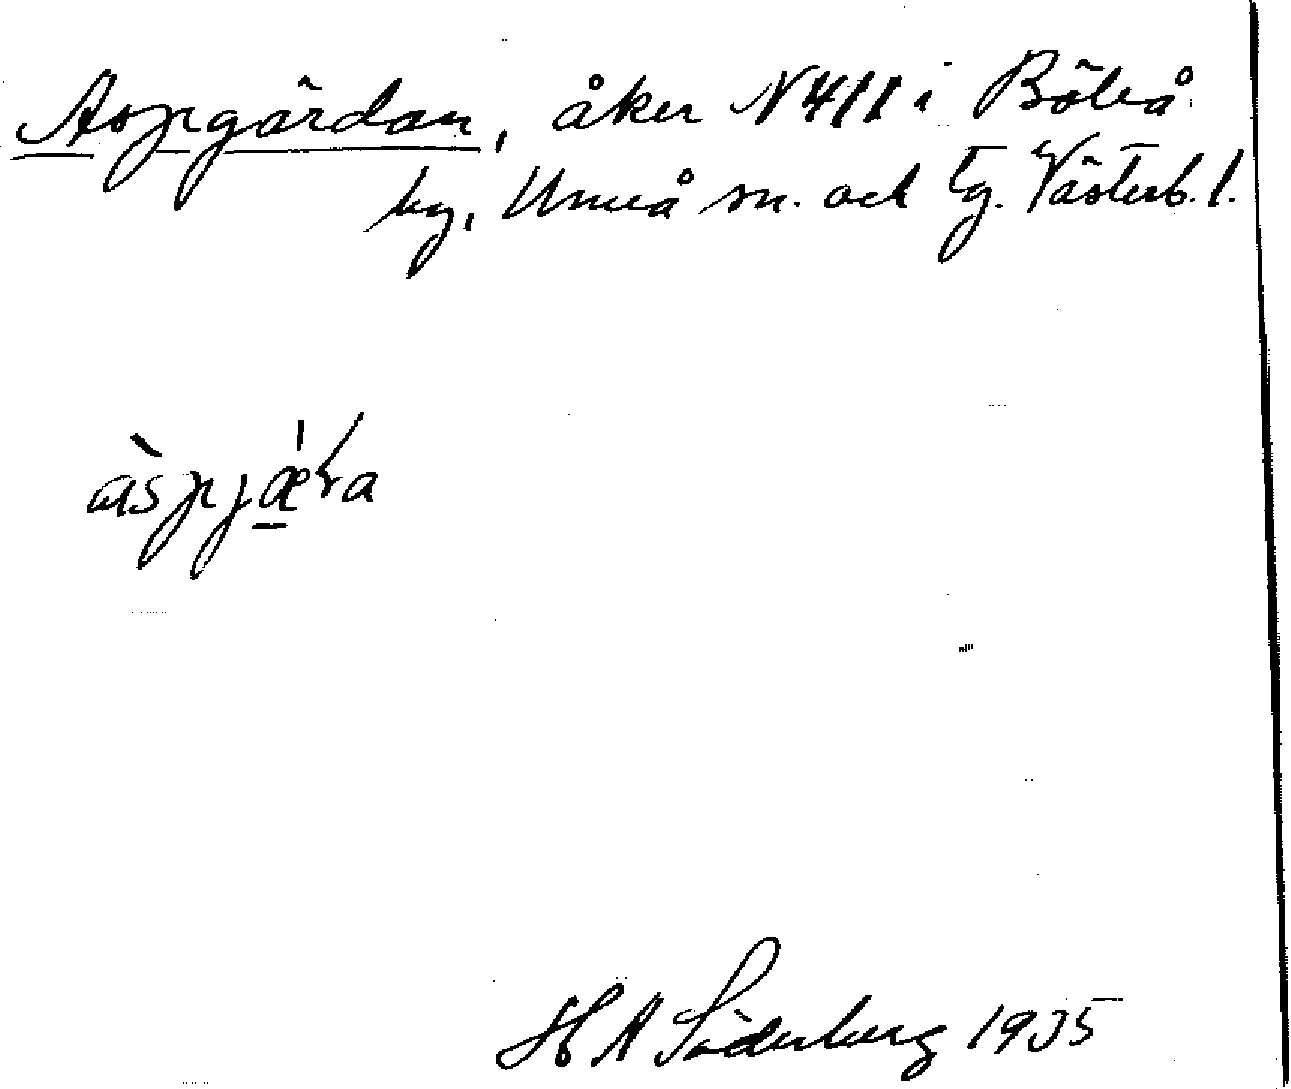 Aspgärdan, åker N411 i Böleå
by, Umeå sn. och tg. Västerb. l.
àspjæ̠̍ɽa
H A Söderberg 1935